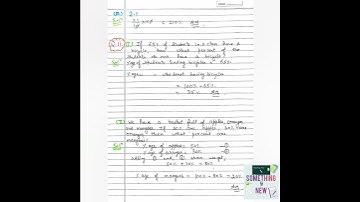 (iii) 2:5
Q.11 (I) If 65% of students in a class have a
bicycle, how what percent of the
students do not have a bicycle?
% age of students having bicycle = 65%
= 100% - 65%
= 35% Ans
(II) We have a basket full of apples, oranges
and mangoes. If 50% are apples, 30% are
oranges then what percent are
mangoes?
% age of apples = 50% - ①
% age of oranges = 30% - ②
adding ① and ② when we get,
50% + 30% = 80%
% age of mangoes = 100% - 80% = 20%
Ans
SOMETHING
NEW